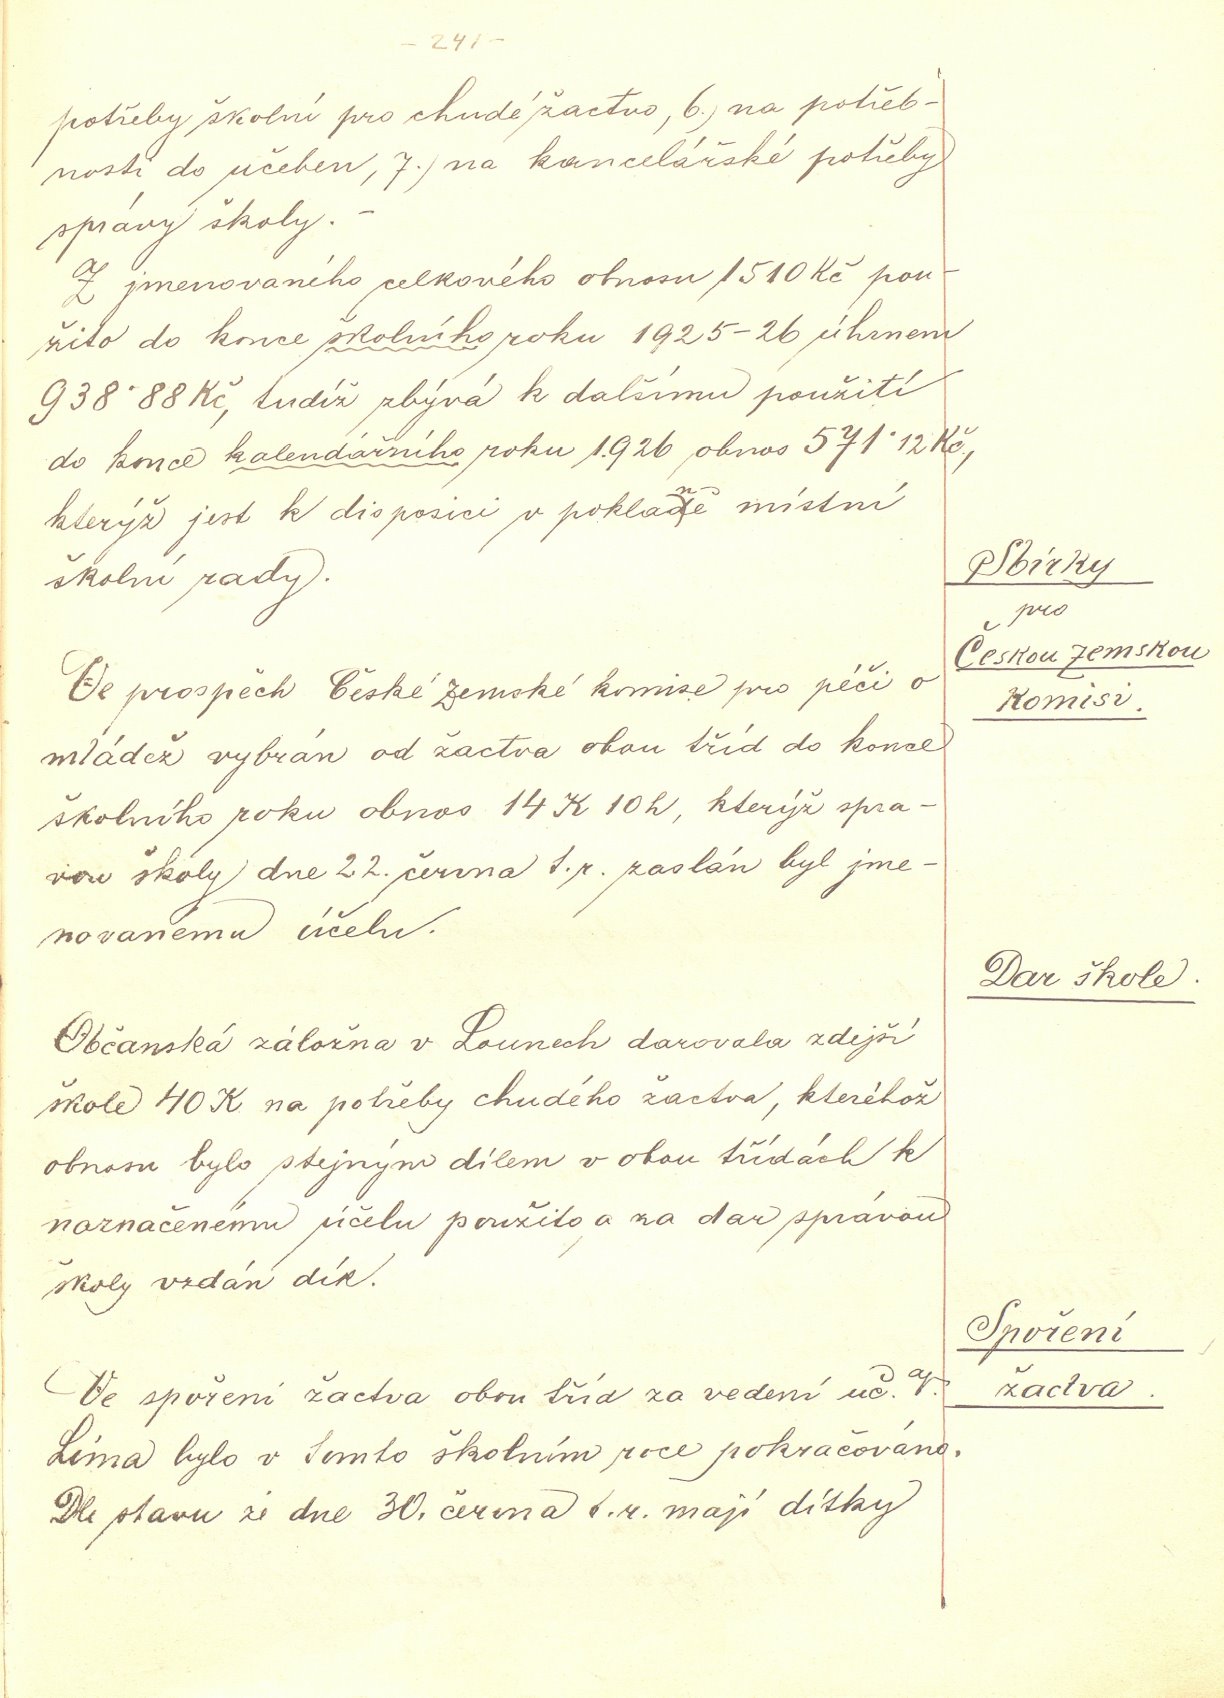 - 241 -
potřeby školní pro chudé žactvo, 6.) na potřeb-
nosti do učeben, 7.) na kancelářské potřeby
správy školy. -
Z jmenovaného celkového obnosu 1510 Kč pou-
žito do konce školního roku 1925-26 úhrnem
938·88 Kč, tudíž zbývá k dalšímu použití
do konce kalendářního roku 1926 obnos 571·12 Kč,
kterýž jest k disposici v pokladně místní
školní rady.
Sbírky
pro
Českou zemskou
Komisi.
Ve prospěch České zemské komise pro péči o
mládež vybrán od žactva obou tříd do konce
školního roku obnos 14 K 10 h, kterýž sprá-
vou školy dne 22. června t. r. zaslán byl jme-
novanému účelu.
Dar škole.
Občanská záložna v Lounech darovala zdejší
škole 40 K na potřeby chudého žactva, kteréhož
obnosu bylo stejným dílem v obou třídách k
naznačenému účelu použito a za dar správou
školy vzdán dík.
Spoření
žactva.
Ve spoření žactva obou tříd za vedení uč. V.
Líma bylo v tomto školním roce pokračováno.
Dle stavu ze dne 30. června t. r. mají dítky